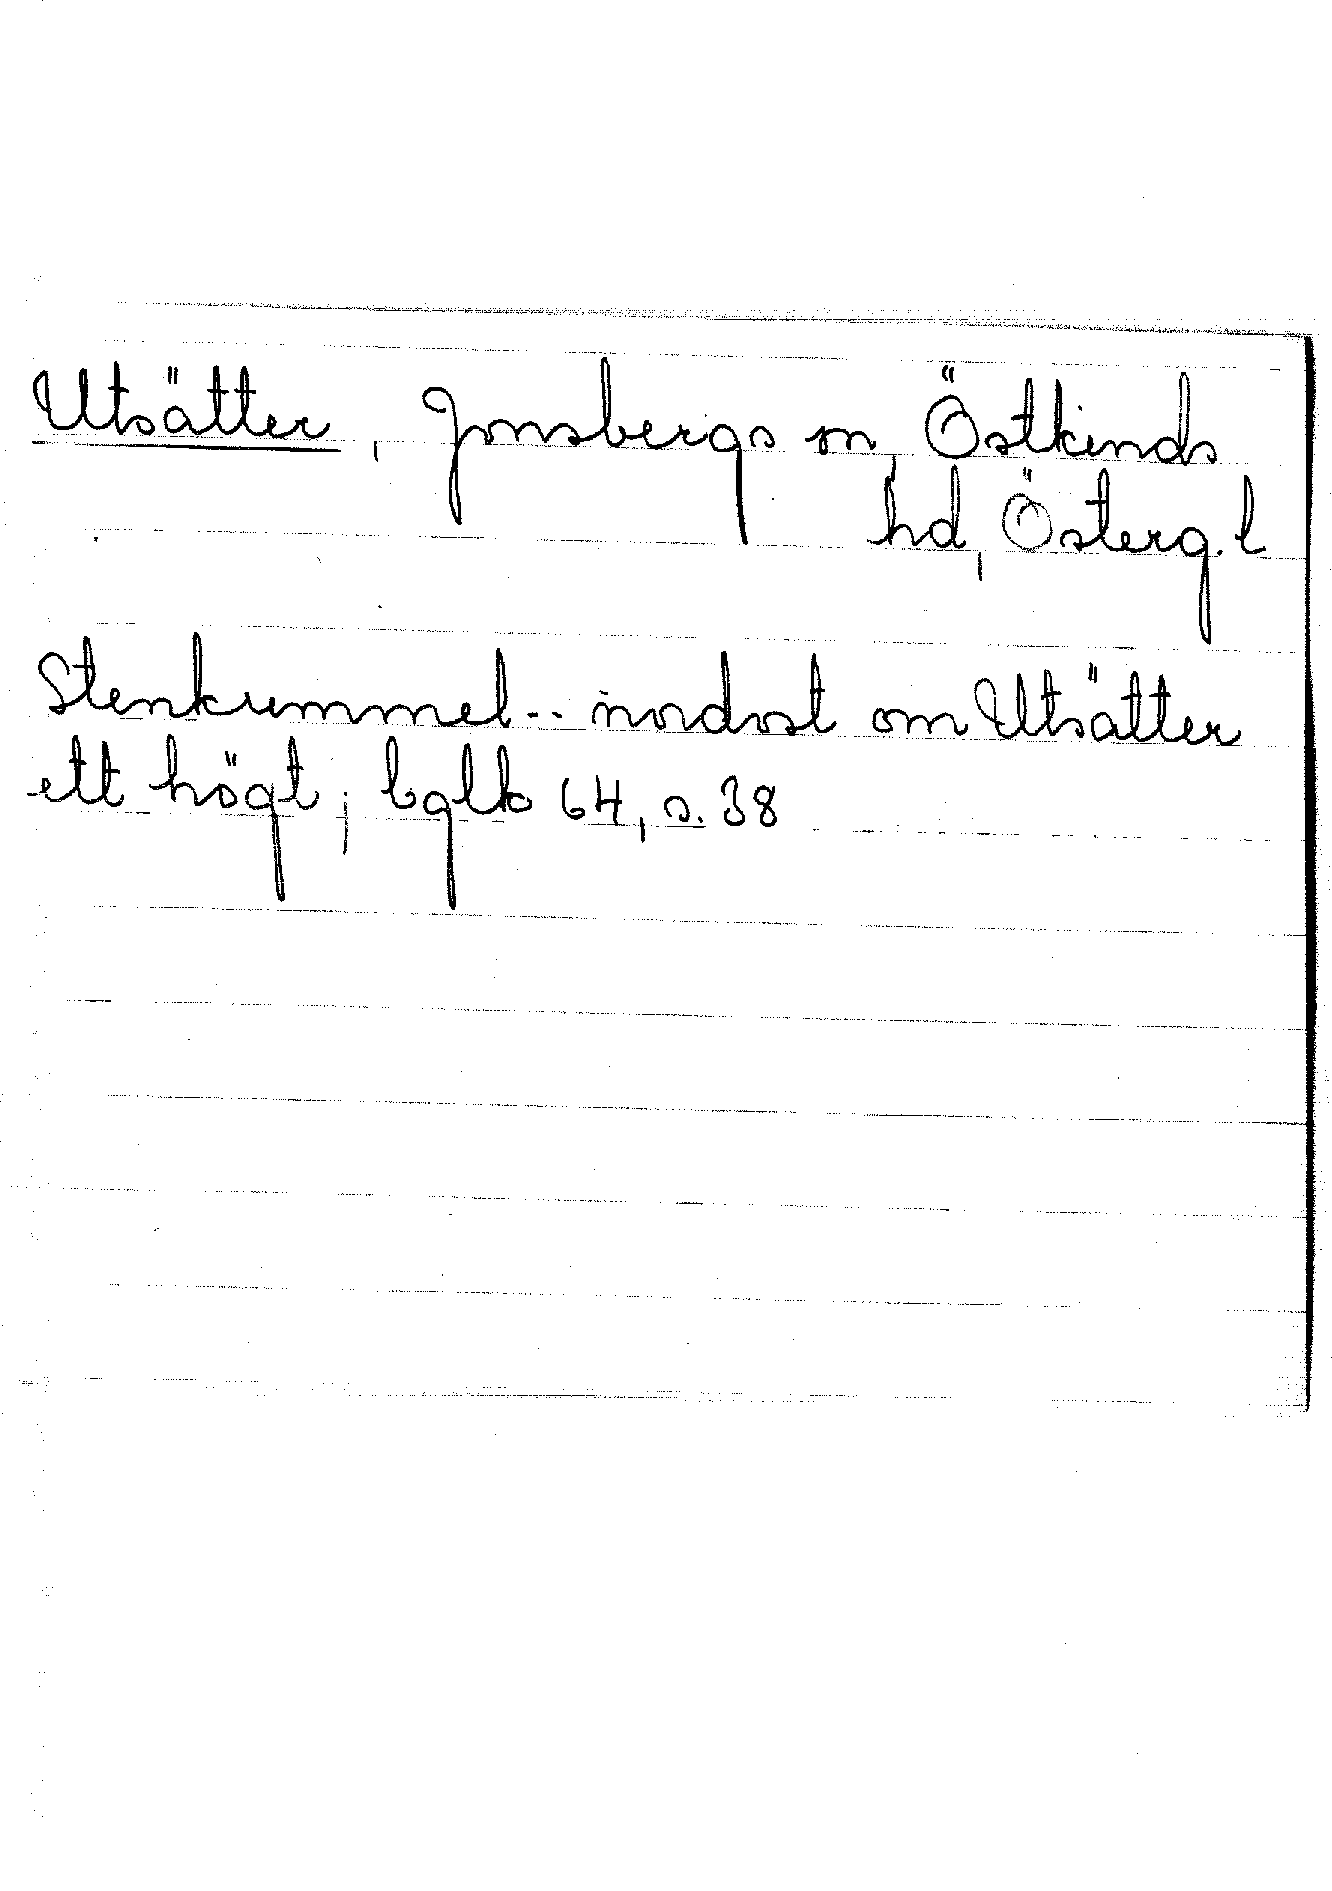 Utsätter, Jonsbergs sn, Östkinds
hd, Österg. l
Stenkummel -- nordost om Utsätter
ett högt; bglk 64, s. 38